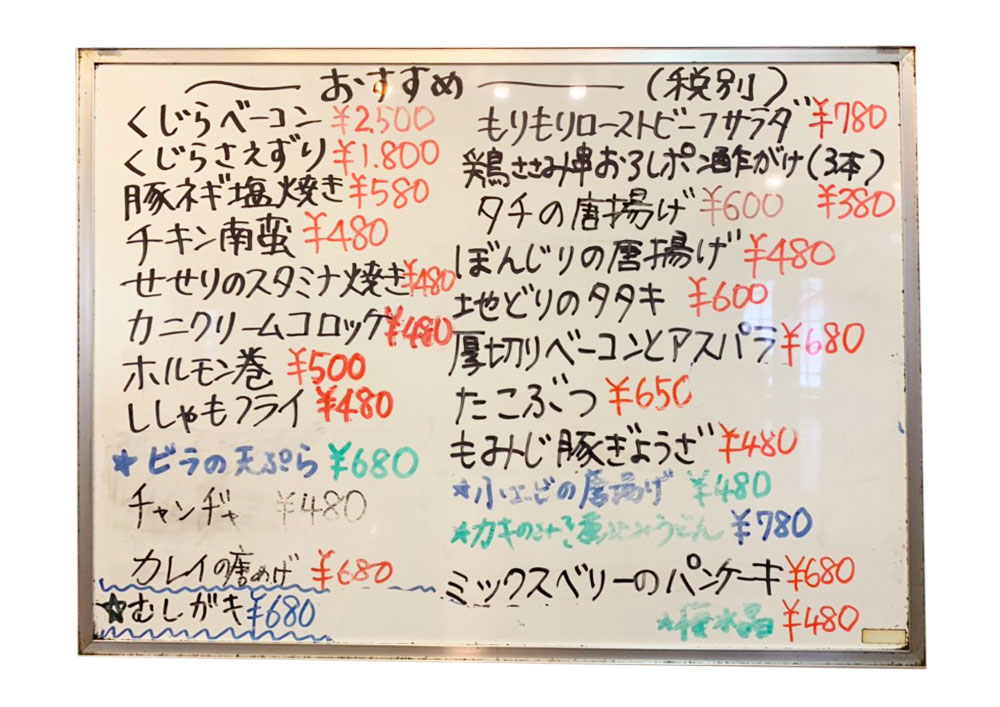 おすすめ (税別)
くじらベーコン ¥2,500
くじらさえずり ¥1,800
豚ネギ塩焼き ¥580
チキン南蛮 ¥480
せせりのスタミナ焼き ¥480
カニクリームコロッケ ¥480
ホルモン巻 ¥500
ししゃもフライ ¥480
★ビラの天ぷら ¥680
チャンヂャ ¥480
カレイの唐あげ ¥680
☆むしガキ ¥680
もりもりローストビーフサラダ ¥780
鶏ささみ串おろしポン酢がけ(3本)
¥380
タチの唐揚げ ¥600
ぼんじりの唐揚げ ¥480
地どりのタタキ ¥600
厚切りベーコンとアスパラ ¥680
たこぶつ ¥650
もみじ豚ぎょうざ ¥480
★小エビの唐揚げ ¥480
★カキのみそ煮込みうどん ¥780
ミックスベリーのパンケーキ ¥680
★桜水晶 ¥480